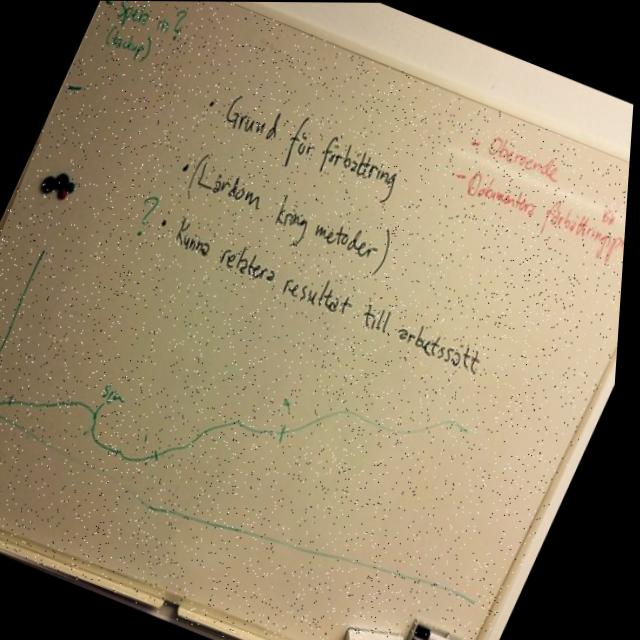 ?
(backup)
• Grund för förbättring
• (Lärdom kring metoder)
? • Kunna relatera resultat till arbetssätt
- Oberoende
- Dokumentera